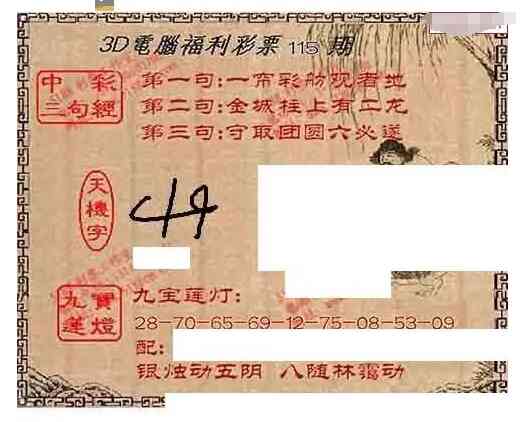 3D電腦福利彩票 115 期
中彩三句經
第一句:一帘彩舫观者地
第二句:金城柱上有二龙
第三句:守取团圆六必遂
天機字
九寶蓮燈
九宝莲灯:
28-70-65-69-12-75-08-53-09
配:
银烛动五阴 八随林霭动